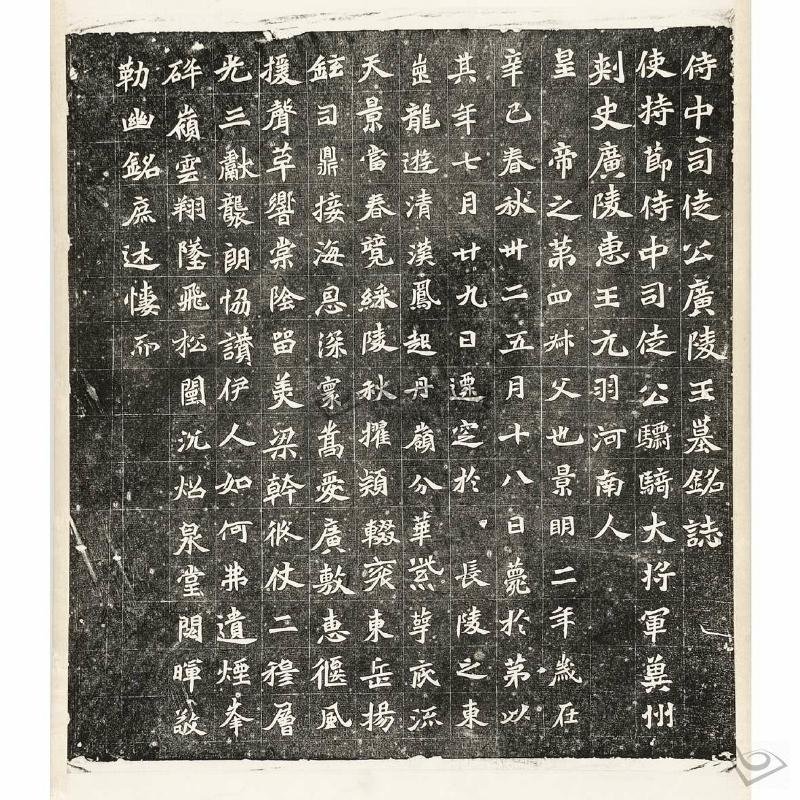 侍中司徒公廣陵王墓銘誌
使持節侍中司徒公驃騎大將軍冀州
刺史廣陵惠王元羽河南人
皇 帝之第四叔父也景明二年歲在
辛巳春秋卅二五月十八日薨於第以
其年七月廿九日遷窆於 長陵之東
崗龍遊清漢鳳起丹嶺分華紫萼底流
天景當春競綵陵秋擢穎輟袞東岳揚
鉉司鼎接海恩深寰嵩愛廣敷惠偃風
援聲草響棠陰留美梁幹俶仗二穆層
光三獻襲朗協讚伊人如何弗遺煙峯
碎嶺雲翔墜飛松闈沉炤泉堂閟暉敬
勒幽銘庶述悽而